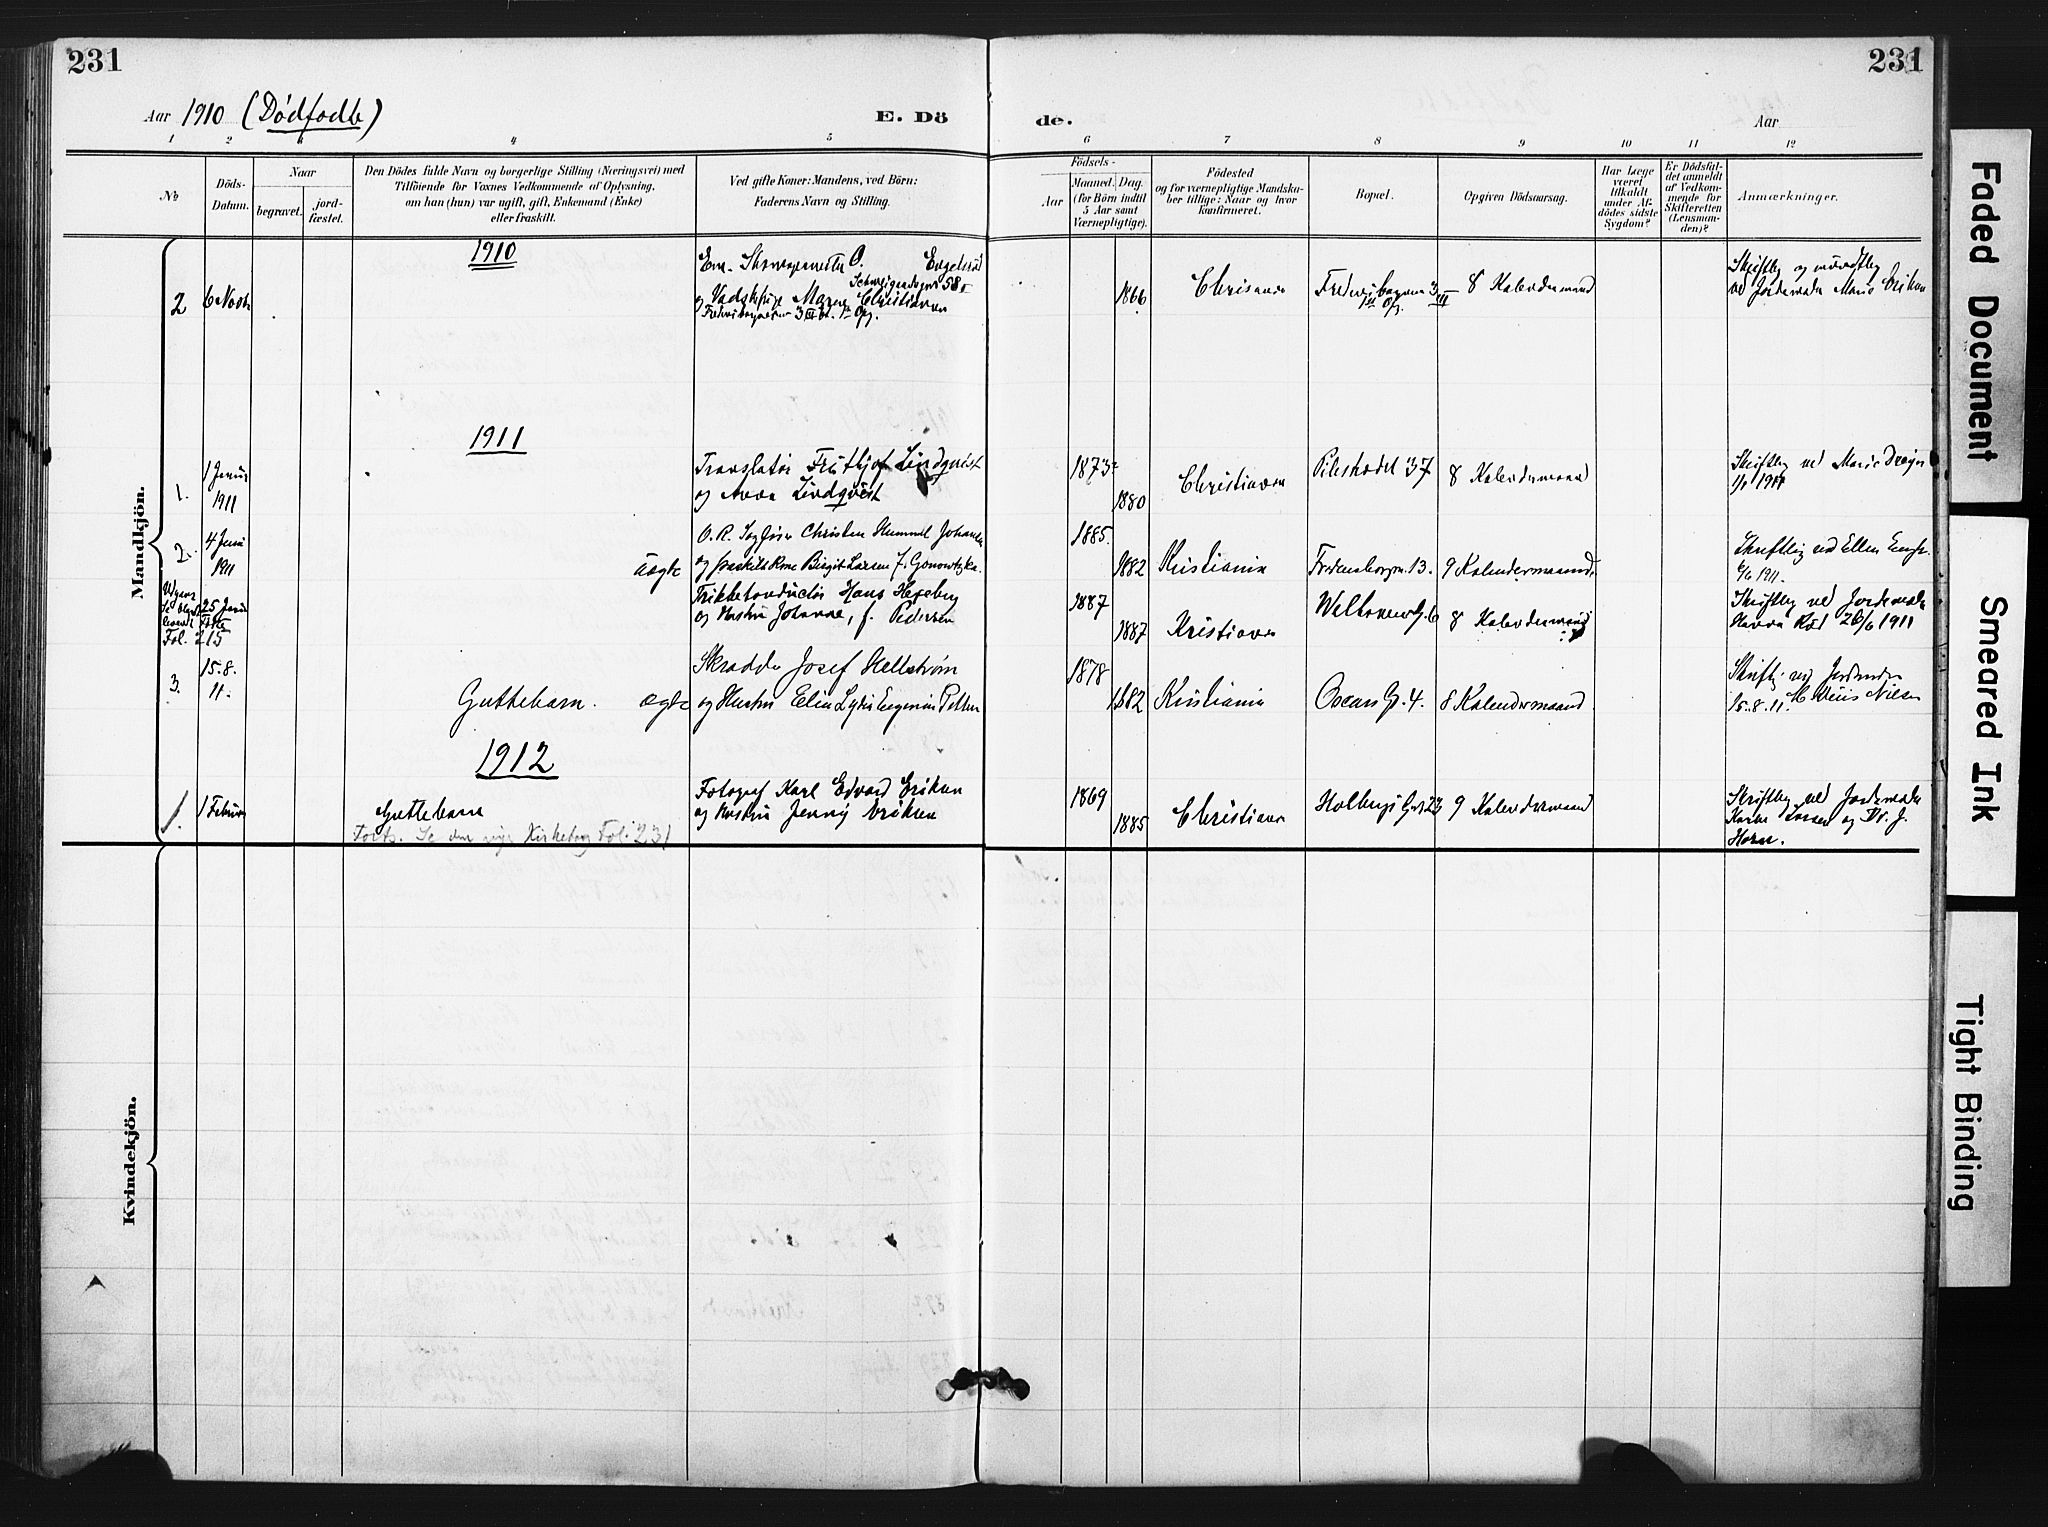 231
231
Aar 1910 (Dødfødte)
E. Dö
de.
Aar
1 2 3 4 5 6 7 8 9 10 11 12
No
Döds-
Datum.
Naar
begravet.
jord-
fæstet.
Den Dödes fulde Navn og borgerlige Stilling (Næringsvei) med
Tilföiende for Voxnes Vedkommende af Oplysning,
om han (hun) var ugift, gift, Enkemand (Enke)
eller fraskilt.
Ved gifte Koner: Mandens, ved Börn:
Faderens Navn og Stilling.
Födsels-
Aar
Maaned.
Dag.
(for Börn indtil
5 Aar samt
Værnepligtige).
Födested
og for værnepligtige Mandska-
ber tillige: Naar og hvor
konfirmeret.
Bopæl.
Opgiven Dödsaarsag.
Har Læge
været
tilkaldt
under Af-
dödes sidste
Sygdom?
Er Dödsfal-
det anmeldt
af Vedkom-
mende for
Skifteretten
(Lensman-
den)?
Anmærkninger.
Mandkjön.
1910
2
6 Novbr
O. Engelsrud
Schweigaardsgade 58
og Vadskepige Maren Christiansen
1866
8 Kalendermaaned
Skriftlig og mundtlig
ved Jordemoder Marie Eriksen
1911
1.
1 Januar
1911
Translatør Frithjof Lindqvist
og Anna Lindqvist
1873
1880
Christiania
Pilestrædet 37
8 Kalendermaaned
Skriftlig ved Marie
1/1 1911
2.
4 Juni
1911
uægte
Christen Hummel Johansen
og fraskilt Kone Birgit Larsen f.
1885.
1882
Kristiania
Fredensborgvn. 13.
9 Kalendermaaned.
Skriftlig ved Ellen
6/6 1911.
Udgaar
Se
levende Fødte
Fol. 215
25 Juni
Trikkekonduktør Hans Hexeberg
og Hustru Johanne, f. Pedersen
1887
1887
Kristiania
8 Kalendermaaned
Skriftlig ved Jordemoder
Hanna 26/6 1911
3.
15.8.
11.
Guttebarn.
ægte
Skrædder Josef Hellstrøm
og Hustru Elin Lydia Eugenia
1878
1882
Kristiania
Oscars G. 4.
8 Kalendermaaned
Skriftlig ved Jordemoder
15.8.11. Nilsen
1912
1.
1 Februar
Guttebarn
Forts. Se den nye Kirkebog Fol. 231
Fotograf Karl Edvard Eriksen
og Hustru Jenny Eriksen
1869
1885
Christiania
Holbergs Gd. 23
9 Kalendermaaned
Skriftlig ved Jordemoder
Karen Larsen og Dr. J.
Horn.
Kvindekjön.
Faded Document
Smeared Ink
Tight Binding